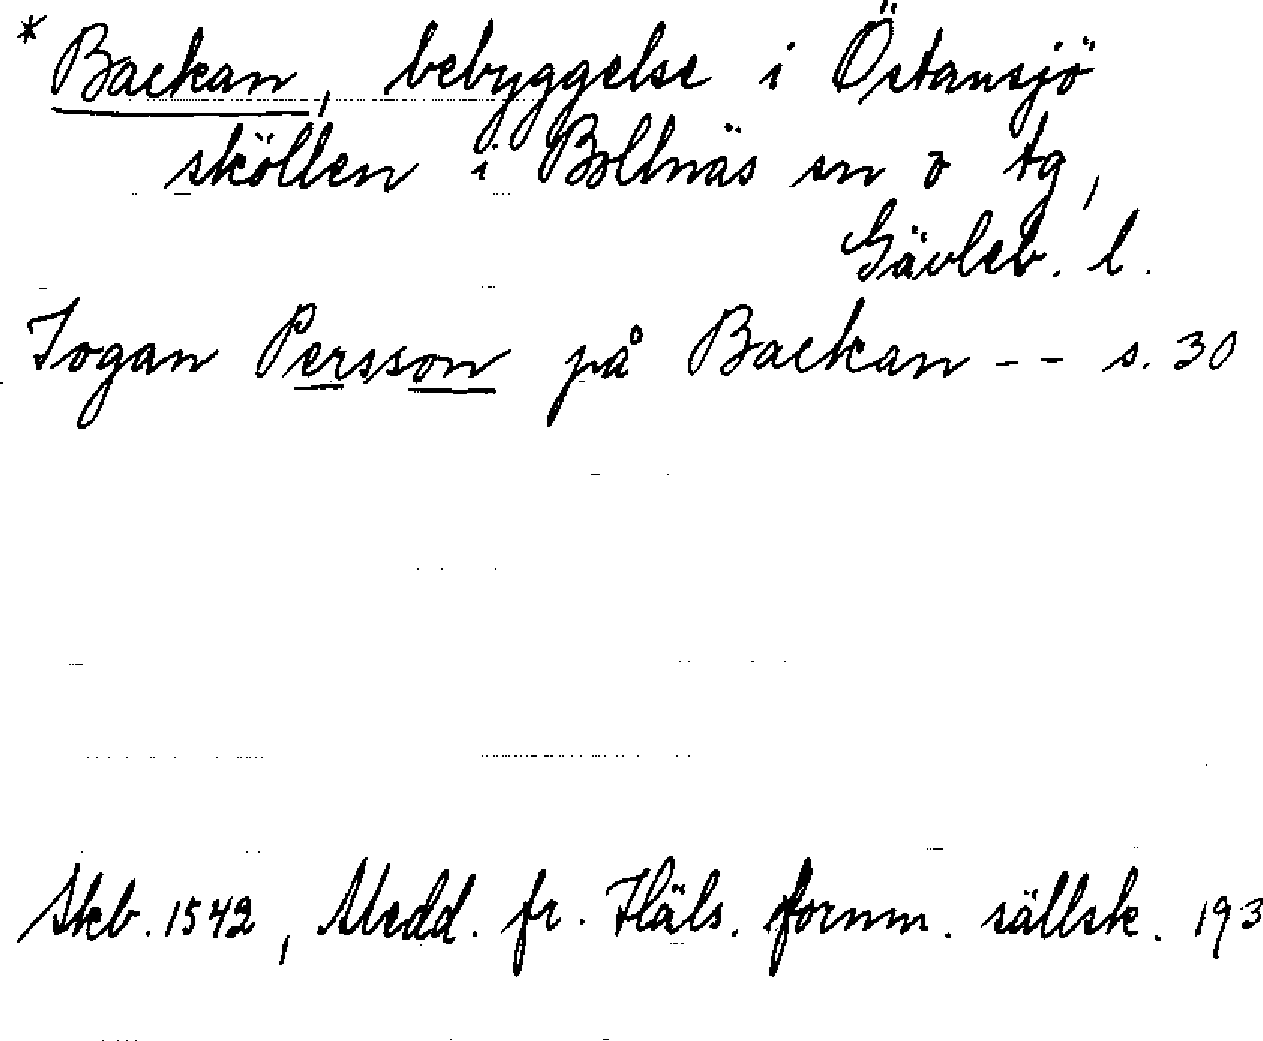 * Backan, bebyggelse i Östansjö
sköllen i Bollnäs sn o tg,
Gävleb. l.
Jogan Persson på Backan -- s. 30
Skb. 1542, Medd. fr. Häls. fornm. sällsk. 193